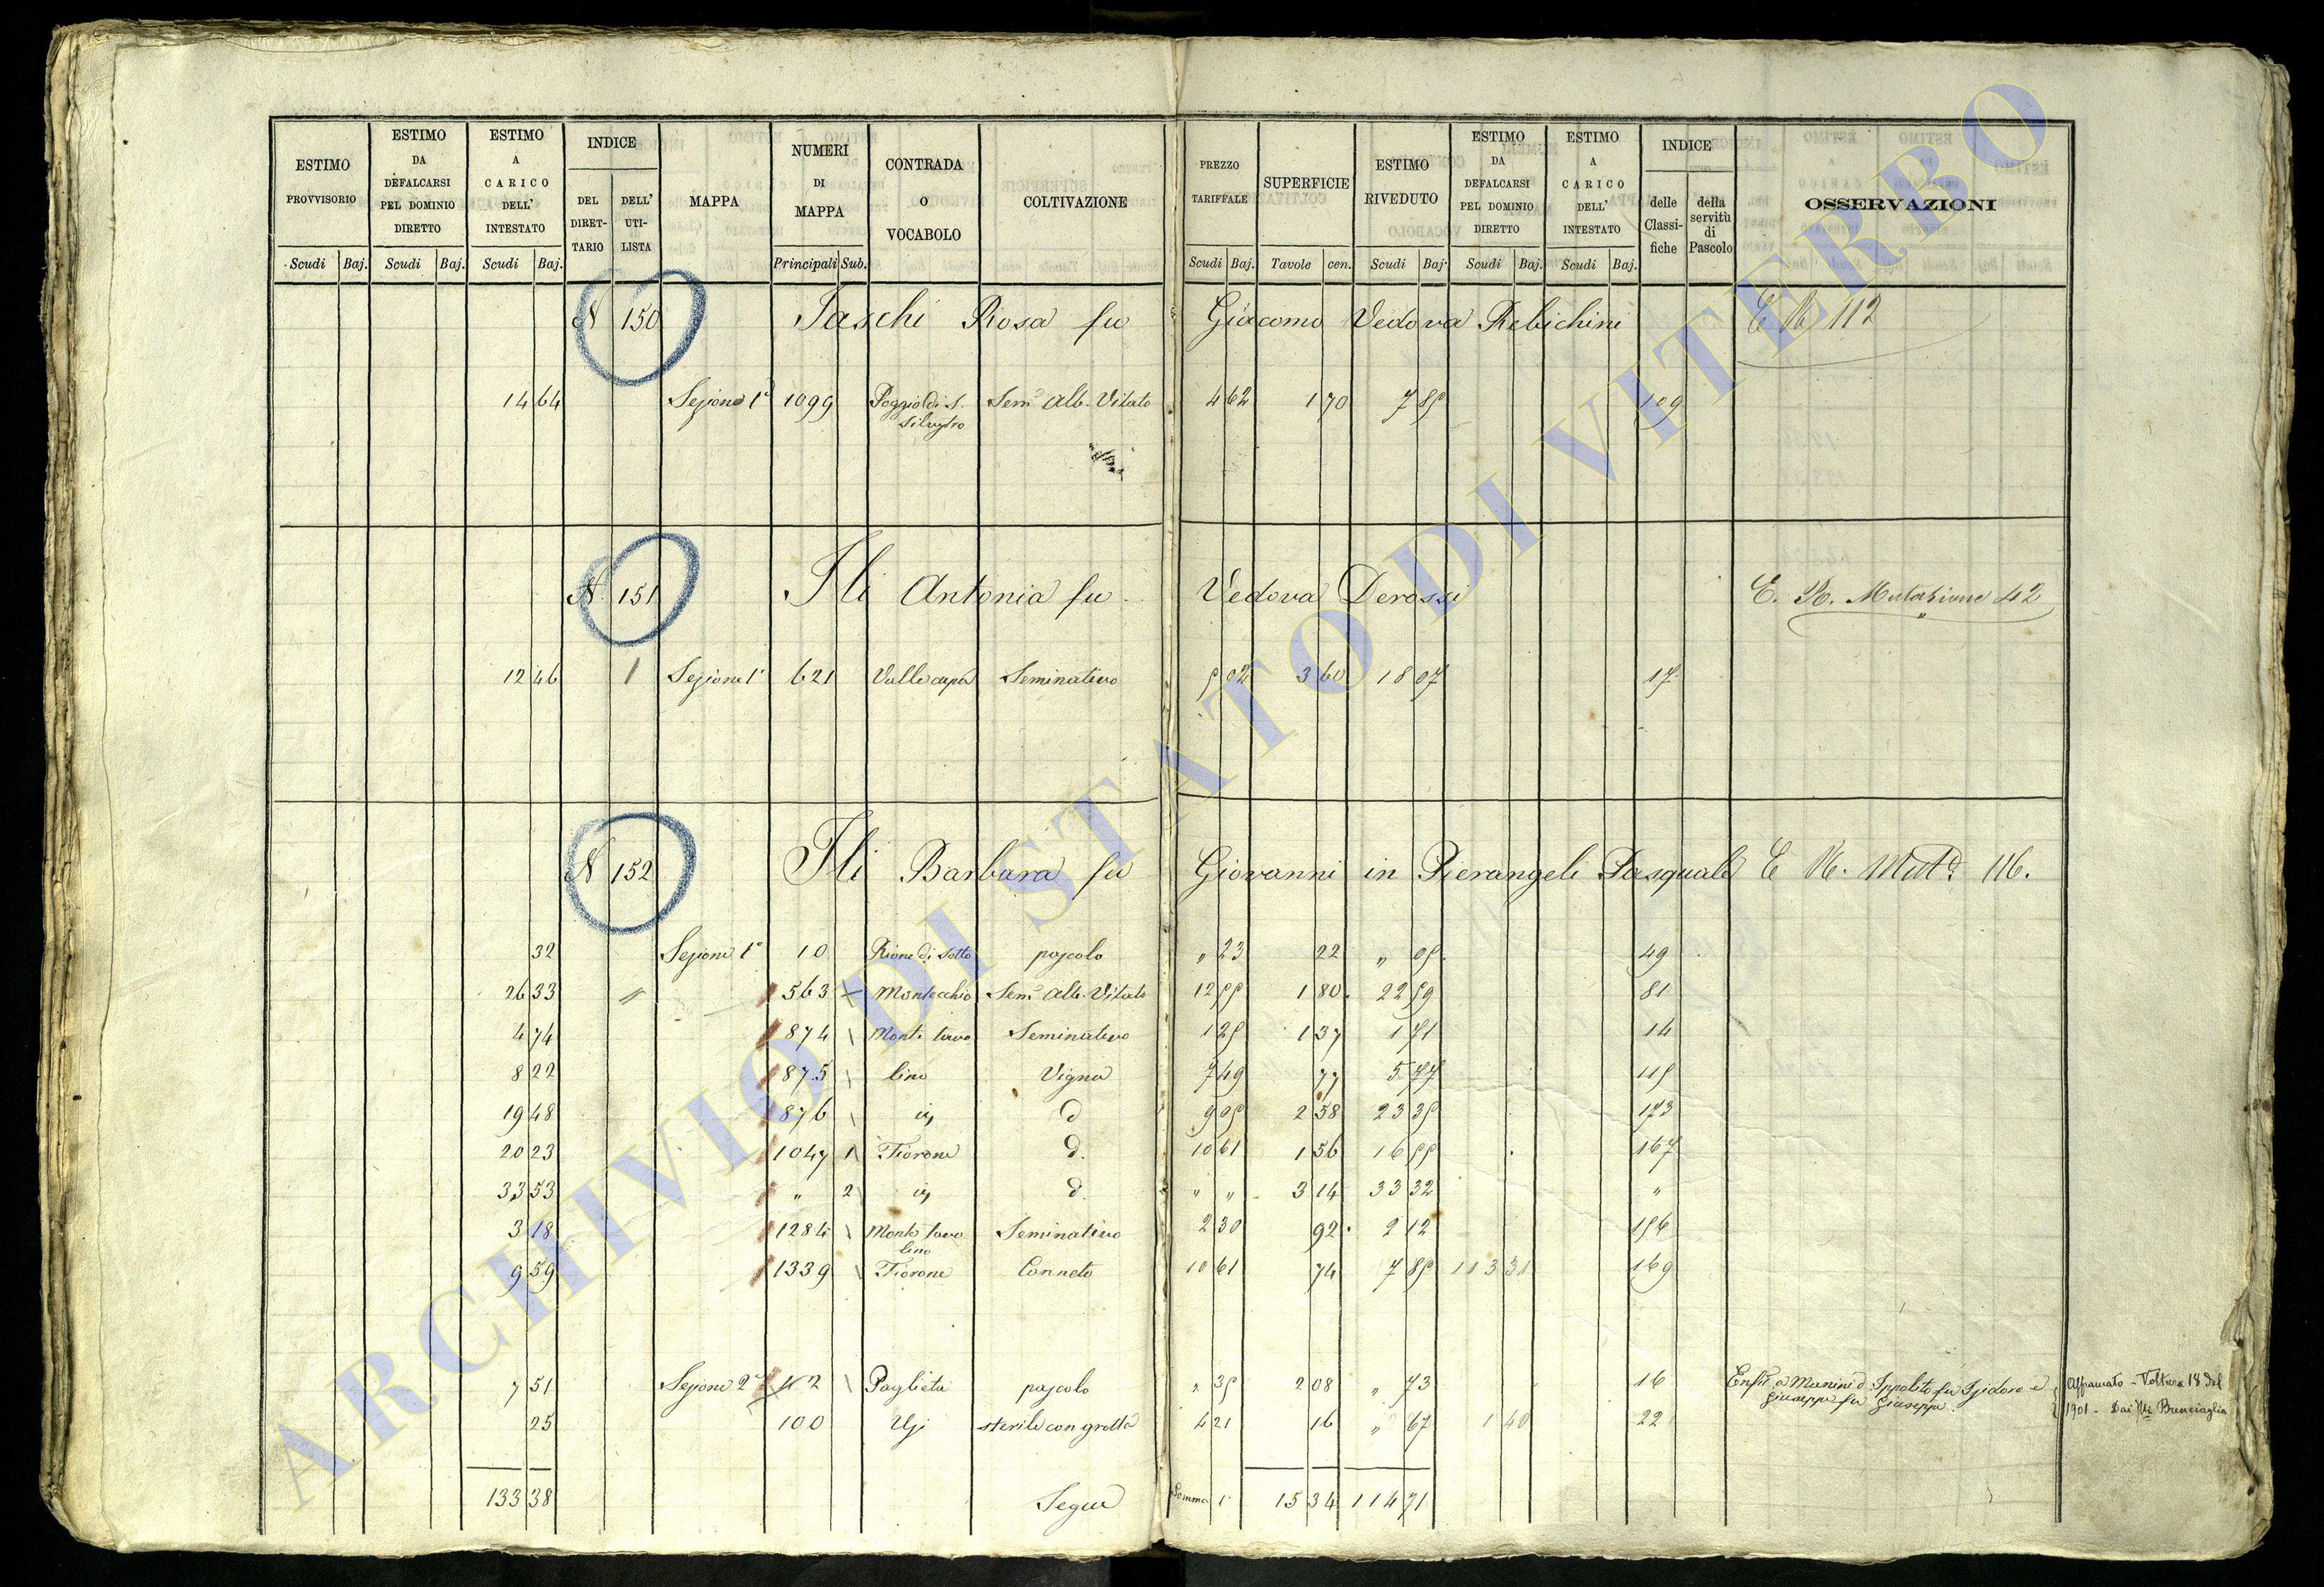 ESTIMO PROVVISORIO Scudi Baj.
ESTIMO DA DEFALCARSI PEL DOMINIO DIRETTO Scudi Baj.
ESTIMO A CARICO DELL' INTESTATO Scudi Baj.
INDICE DEL DIRET-TARIO DELL' UTI-LISTA
MAPPA
NUMERI DI MAPPA Principali Sub.
CONTRADA O VOCABOLO
COLTIVAZIONE
PREZZO TARIFFALE Scudi Baj.
SUPERFICIE Tavole cen.
ESTIMO RIVEDUTO Scudi Baj.
ESTIMO DA DEFALCARSI PEL DOMINIO DIRETTO Scudi Baj.
ESTIMO A CARICO DELL' INTESTATO Scudi Baj.
INDICE delle Classi-fiche della servitù di Pascolo
OSSERVAZIONI
N 150 Rosa fu Giacomo Vedova Rebichini E R 112
14 64 Sezione 1ª 1099 Poggio di S. Silvestro Semº Alb. Vitato 4 62 1 70 7 85 109
N. 151 Ili Antonia fu Vedova Derossi E. R. Mutazione 42
12 46 1 Sezione 1ª 621 Valle cupa Seminativo 5 02 3 60 18 07 17
N 152 Ili Barbara fu Giovanni in Pierangeli Pasquale E R. Mutª 116.
32 Sezione 1ª 10 Rione di sotto pascolo " 23 22 " 05 49
26 33 " 563 Montecchio Semº Alb. Vitato 12 55 1 80 22 59 81
4 74 874 Monte tavo Seminativo 1 25 1 37 1 71 14
8 22 875 lino Vigna 7 49 77 5 77 115
19 48 876 id d 9 05 2 58 23 35 173
20 23 1047 1 Fiorone d. 10 61 1 56 16 55 167
33 53 " 2 id d. " " 3 14 33 32 "
3 18 1284 Monte tavo lino Seminativo 2 30 92 2 12 156
9 59 1339 Fiorone Canneto 10 61 74 7 85 113 31 169
7 51 Sezione 2ª 42 Paglieta pascolo " 35 2 08 " 73 16 Enfit a Manini Ippolito fu Isidoro e Giuseppe fu Giuseppe
Affrancato - Voltura 18 del 1901 - Dai Brenciaglia
25 100 sterile con grotta 4 21 16 " 67 1 40 22
133 38 Segue Somma 15 34 114 71
ARCHIVIO DI STATO DI VITERBO